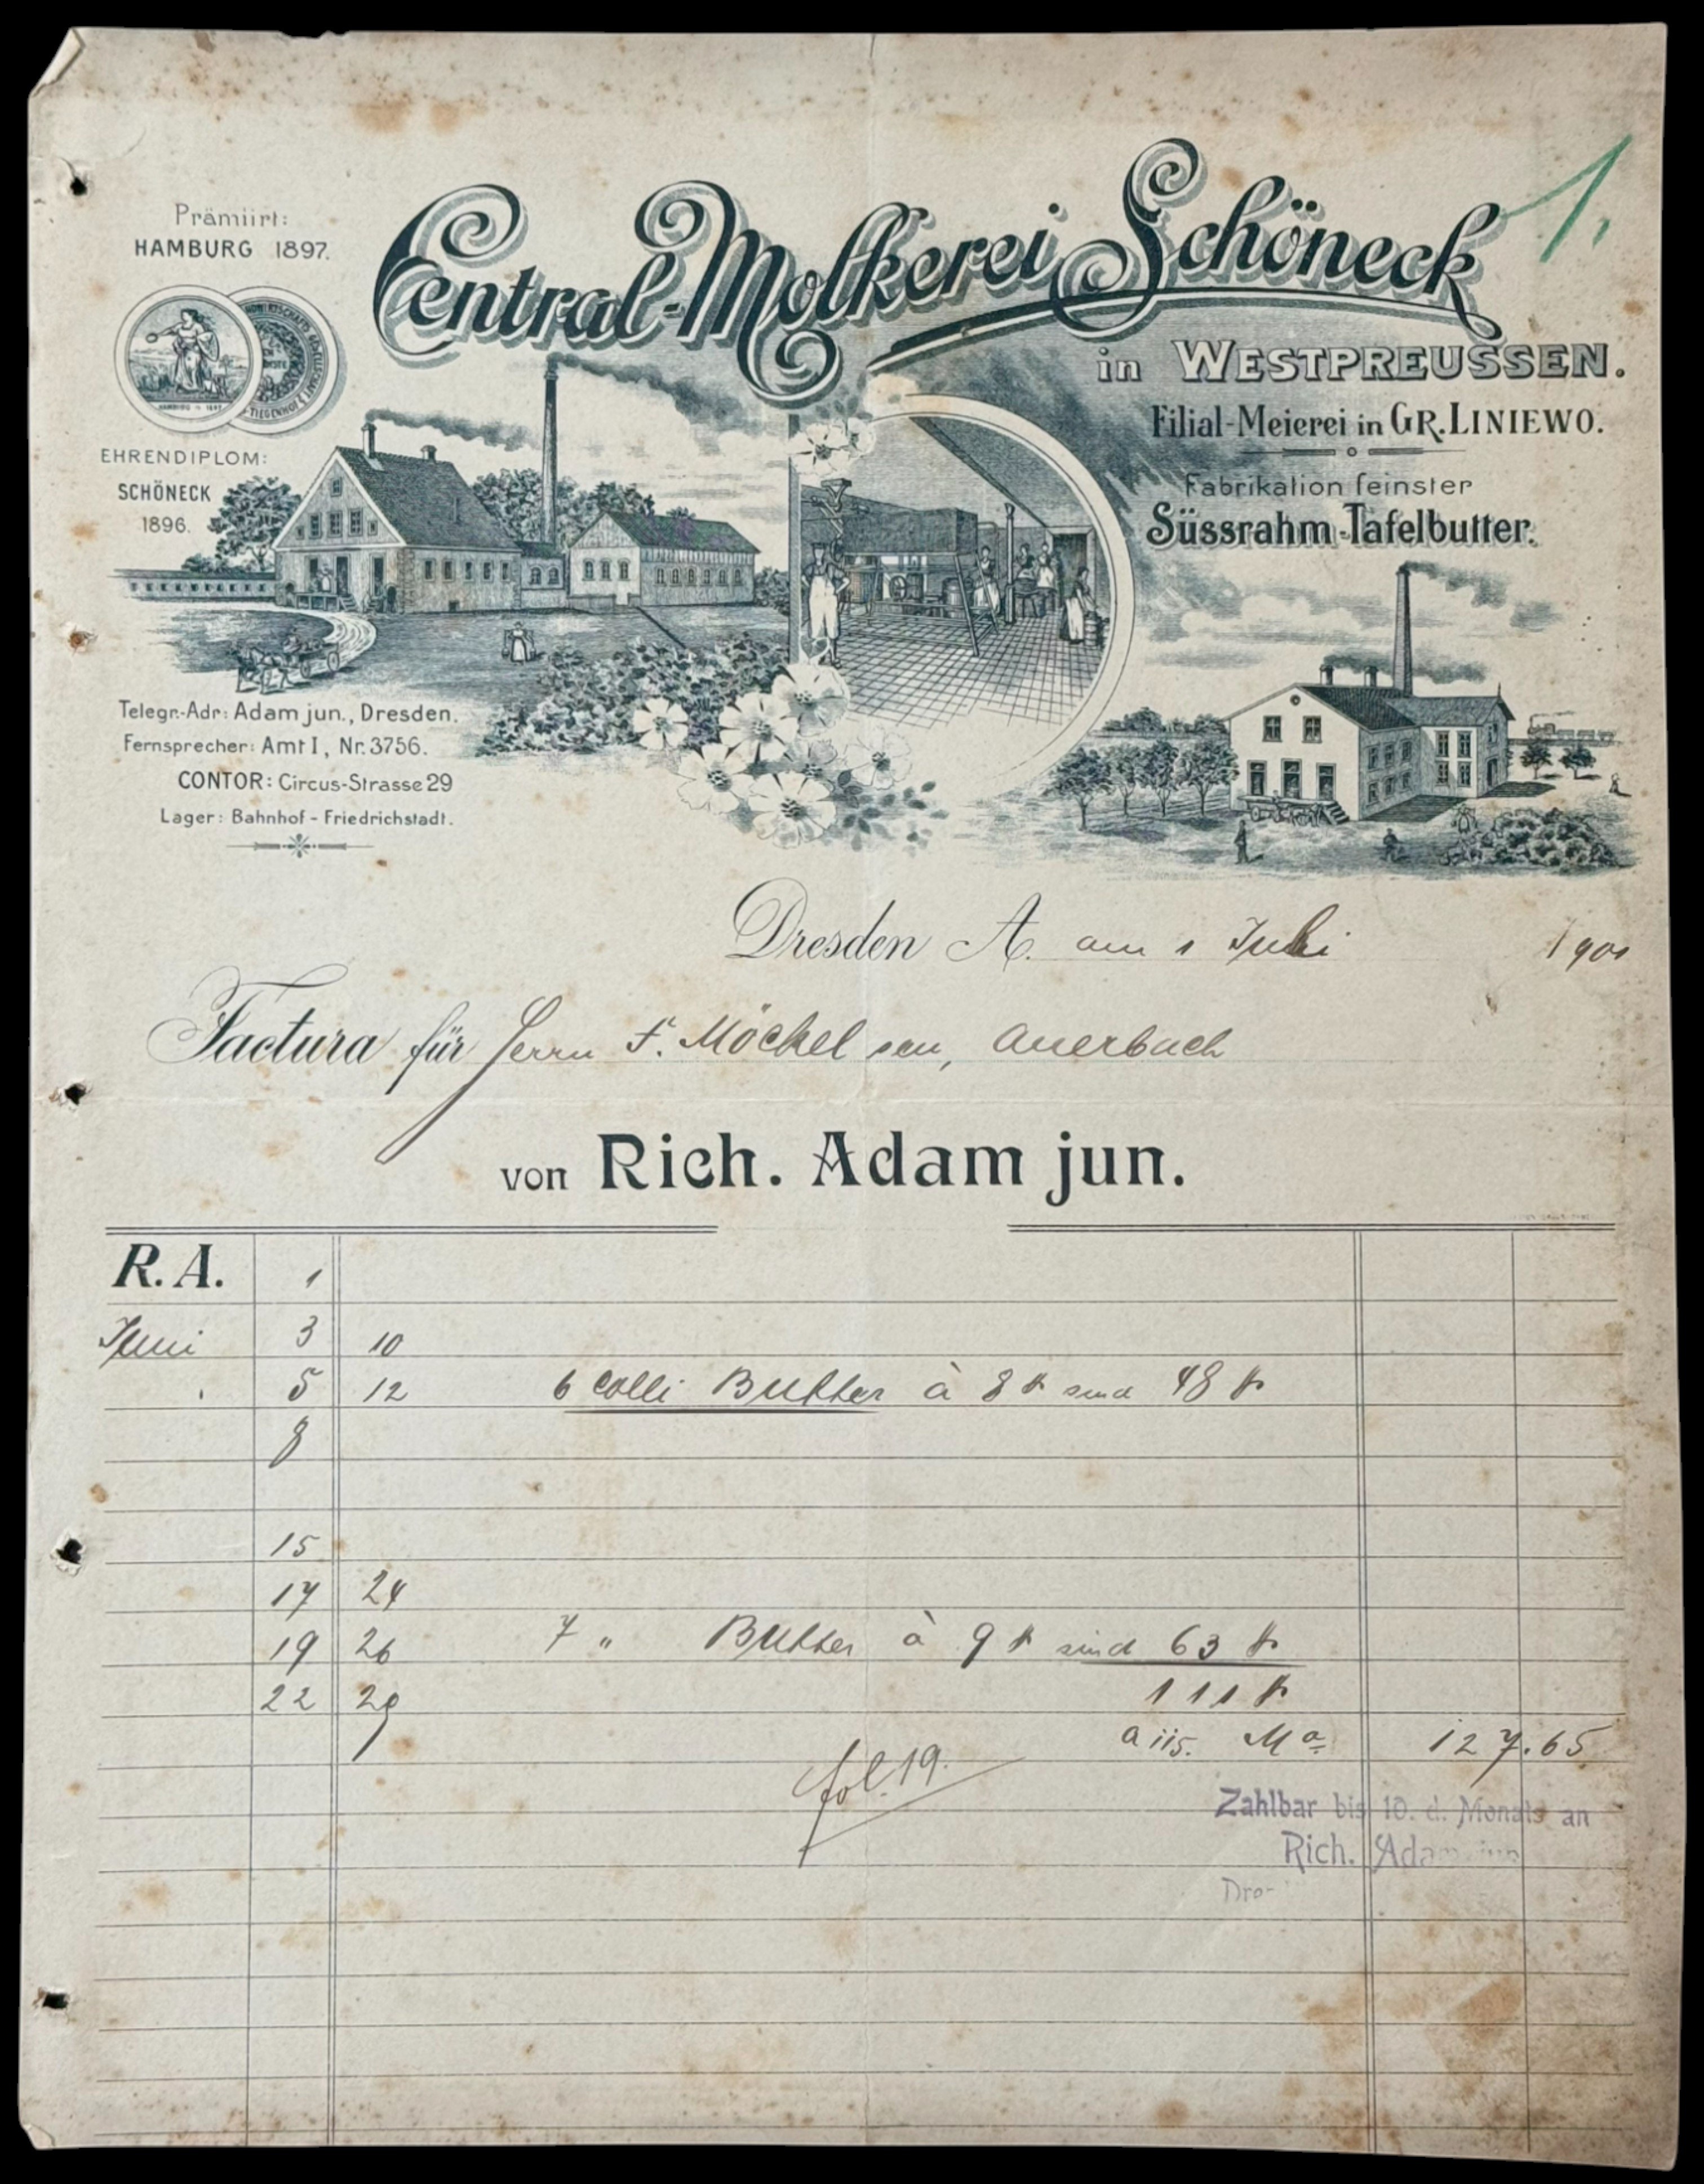 1.
Prämiirt:
HAMBURG 1897.
Central-Molkerei Schöneck
in WESTPREUSSEN.
Filial-Meierei in GR. LINIEWO.
Fabrikation feinster
Süssrahm-Tafelbutter.
EHRENDIPLOM:
SCHÖNECK
1896.
Telegr.-Adr: Adam jun., Dresden.
Fernsprecher: Amt I, Nr. 3756.
CONTOR: Circus-Strasse 29
Lager: Bahnhof - Friedrichstadt.
Dresden A. am 1 Juli 1901
Factura für Herrn F. Möckel sen, Auerbach
von Rich. Adam jun.
R. A. 1
Juni 3 10
5 12 6 Colli Butter à 8 ℔ sind 48 ℔
8
15
17 24
19 26 7 " Butter à 9 ℔ sind 63 ℔
22 29 111 ℔
a 115. M 127.65
fol. 19.
Zahlbar bis 10. d. Monats an
Rich. Adam jun